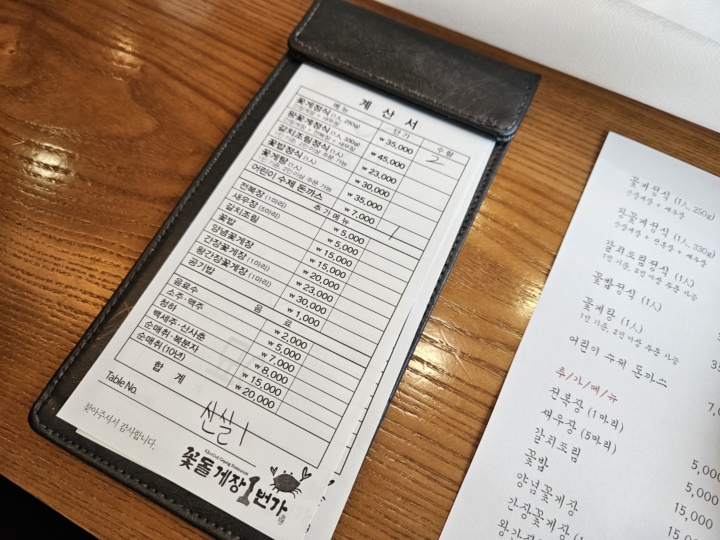 계 산 서
메 뉴 단 가 수 량
꽃게장정식 (1인, 250g) ₩ 35,000 2
간장게장 + 새우장
왕꽃게장정식 (1인, 330g) ₩ 45,000
간장게장 + 전복장 + 새우장
갈치조림정식 (1인) ₩ 23,000
1인 기준, 2인 이상 주문 가능
꽃밥정식 (1인) ₩ 30,000
꽃게탕 (1인) ₩ 35,000
1인 기준, 2인 이상 주문 가능
어린이 수제 돈까스 ₩ 7,000 1
추 가 메 뉴
전복장 (1마리) ₩ 5,000
새우장 (5마리) ₩ 5,000
갈치조림 ₩ 15,000
꽃밥 ₩ 15,000
양념꽃게장 ₩ 20,000
간장꽃게장 (1마리) ₩ 23,000
왕간장꽃게장 (1마리) ₩ 30,000
공기밥 ₩ 1,000
음 료
음료수 ₩ 2,000
소주·맥주 ₩ 5,000
청하 ₩ 7,000
백세주·산사춘 ₩ 8,000
순매취·복분자 ₩ 15,000
순매취 (10년) ₩ 20,000
합 계
Table No.
찾아주셔서 감사합니다.
꽃돌게장1번가
꽃게장정식 (1인, 250g)
간장게장 + 새우장
왕꽃게장정식 (1인, 330g)
간장게장 + 전복장 + 새우장
갈치조림정식 (1인)
1인 기준, 2인 이상 주문 가능
꽃밥정식 (1인)
꽃게탕 (1인)
1인 기준, 2인 이상 주문 가능
어린이 수제 돈까스
추/가/메/뉴
전복장 (1마리) 5,000
새우장 (5마리) 5,000
갈치조림 15,000
꽃밥
양념꽃게장
간장꽃게장